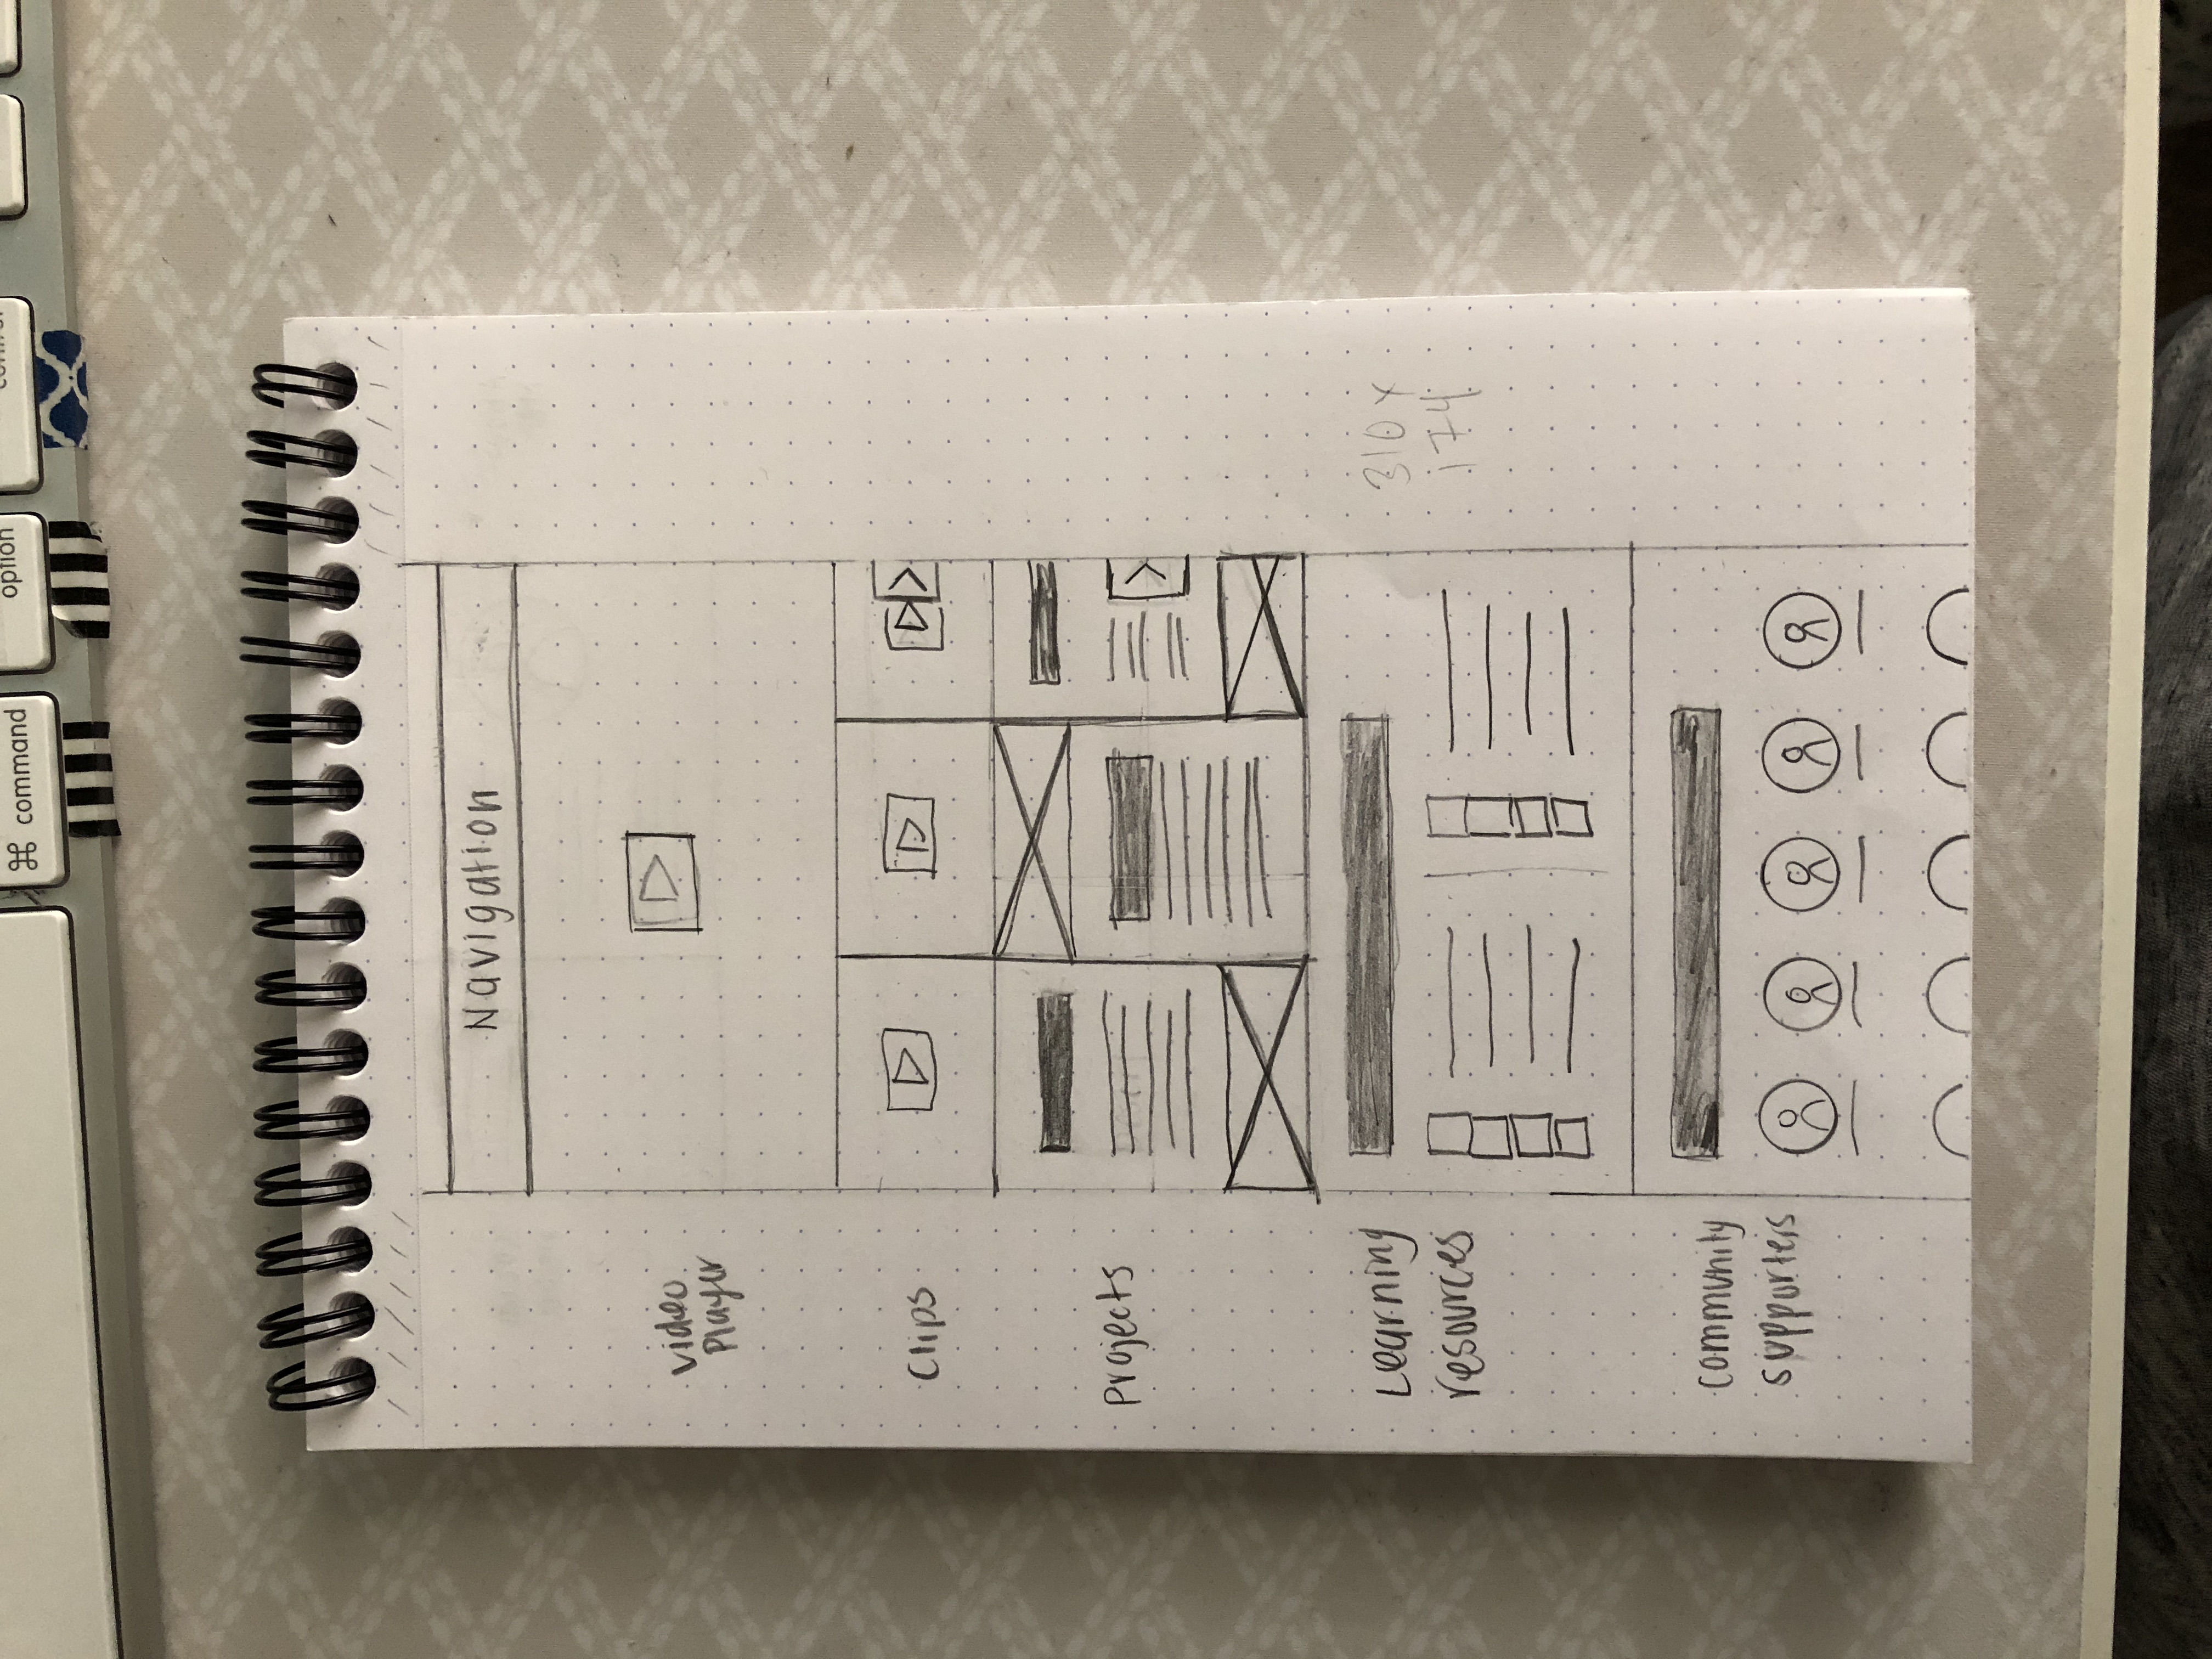 ⌘ command
option
control
Navigation
Video
Player
Clips
Projects
Learning
resources
310 x
174
Community
supporters